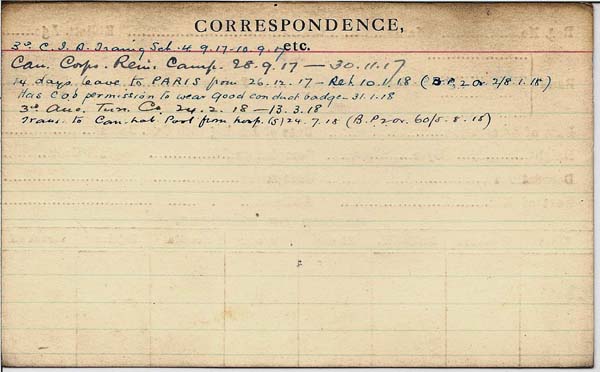 CORRESPONDENCE,
etc.
3rd C.I.B. Training Sch. 4.9.17-10.9.17
Can. Corps. Rein. Camp. 28.9.17 — 30.11.17
14 days leave to PARIS from 26.12.17 - Ret. 10.1.18 (B.P.2 Or. 2/8.1.18)
Has C.O's permission to wear Good conduct badge - 31.1.18
3rd Aus. Tun. Co. 24.2.18 — 13.3.18
Trans. to Can. Lab. Pool from hosp. (S) 24.7.18 (B.P.2 or. 60/5.8.18)